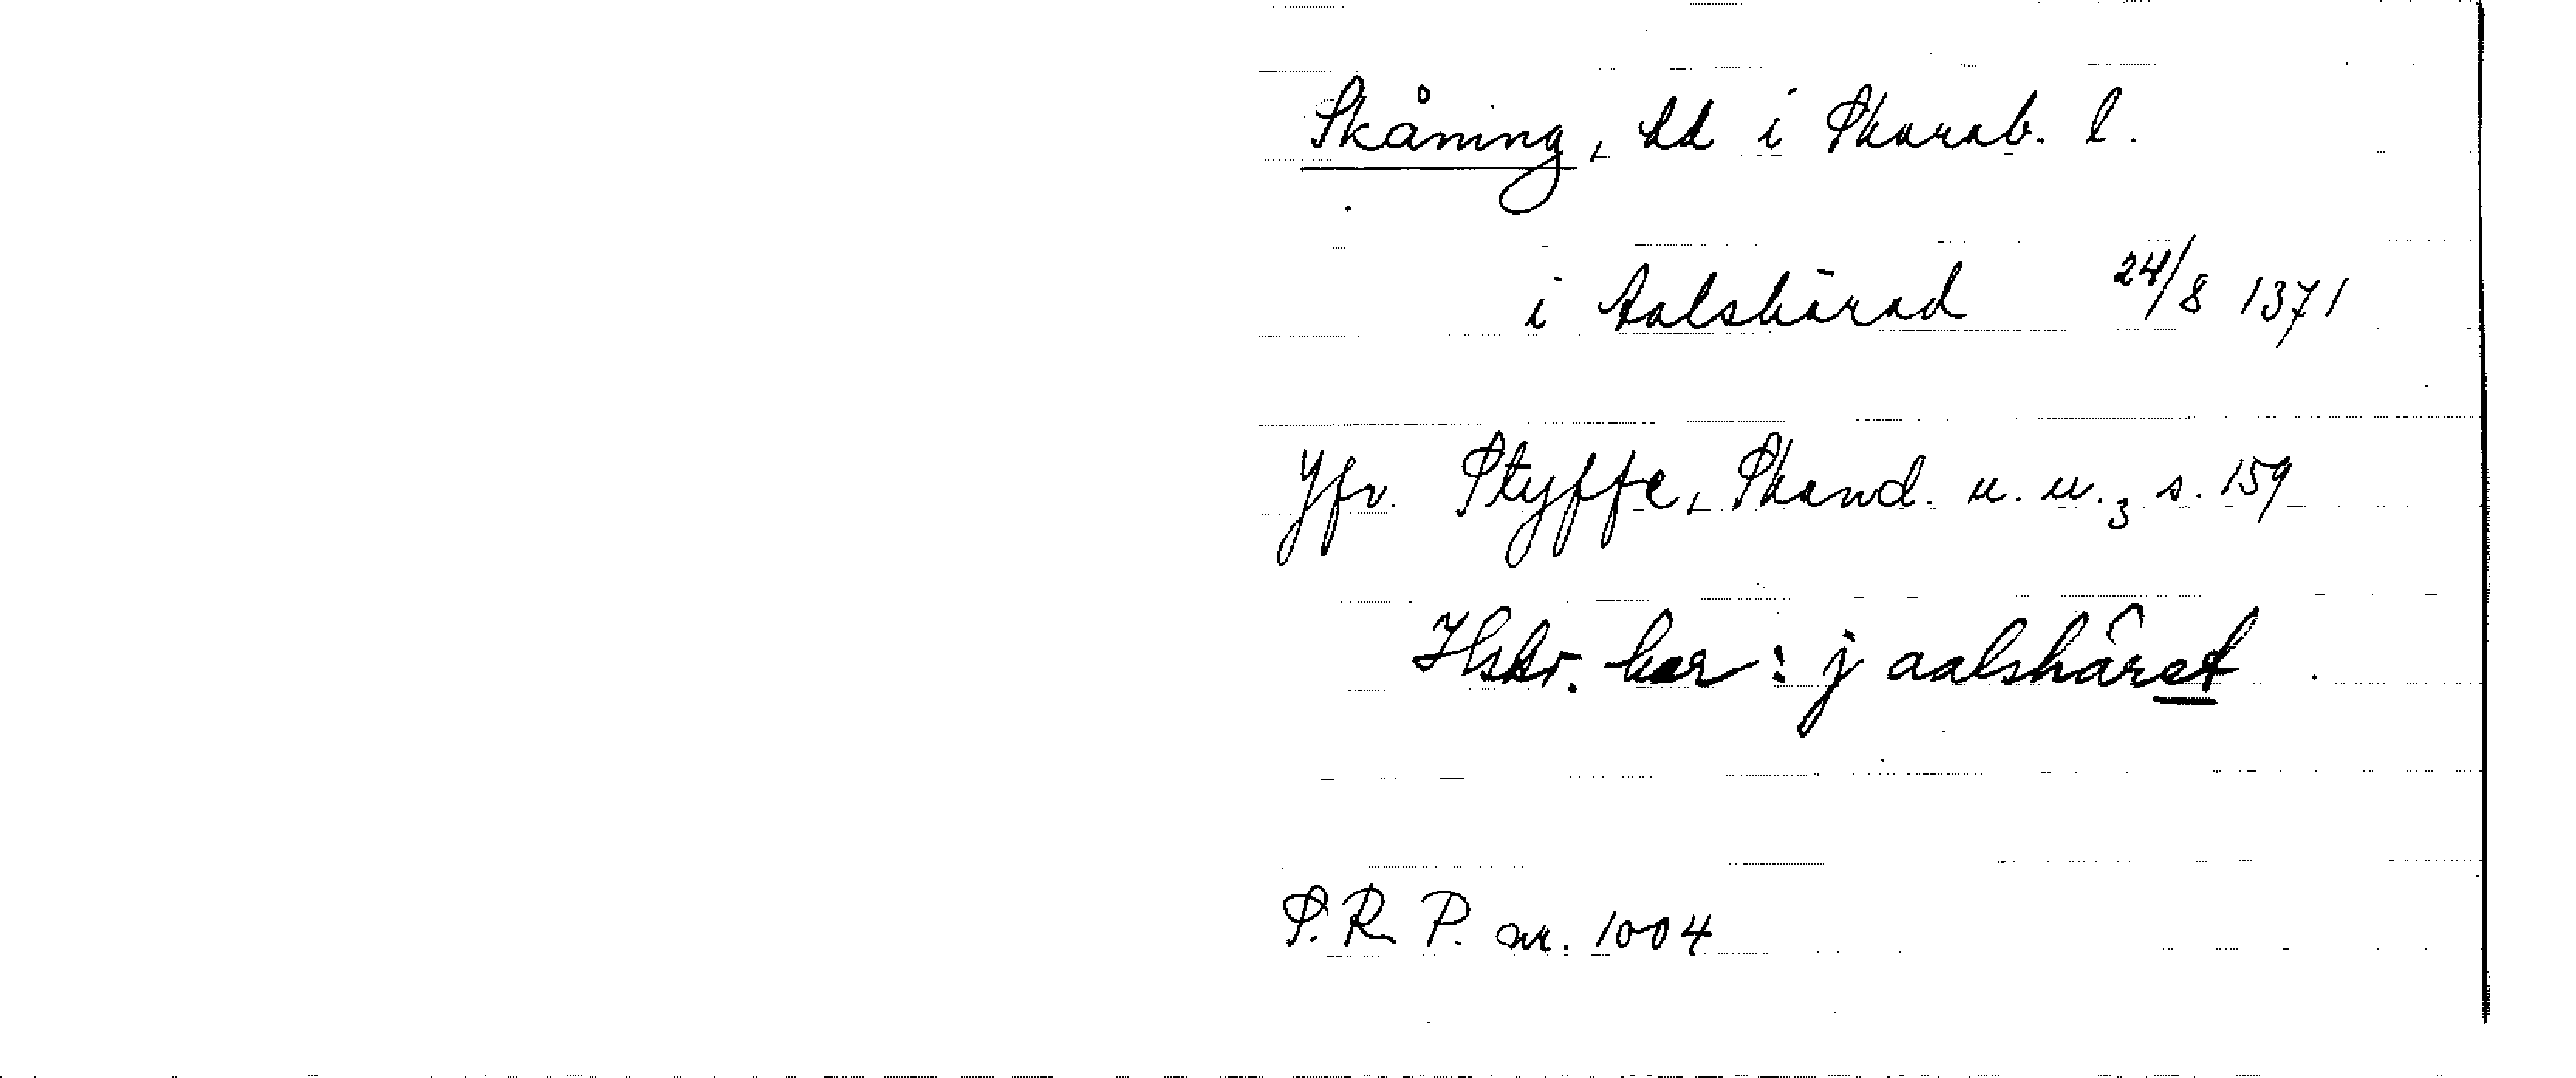 Skåning, hd i Skarab. l.
i Aalshärad 24/8 1371
Jfr. Styffe, Skand. u. u.3 s. 159
Hskr. har: j aalshäret
S. R. P. nr. 1004